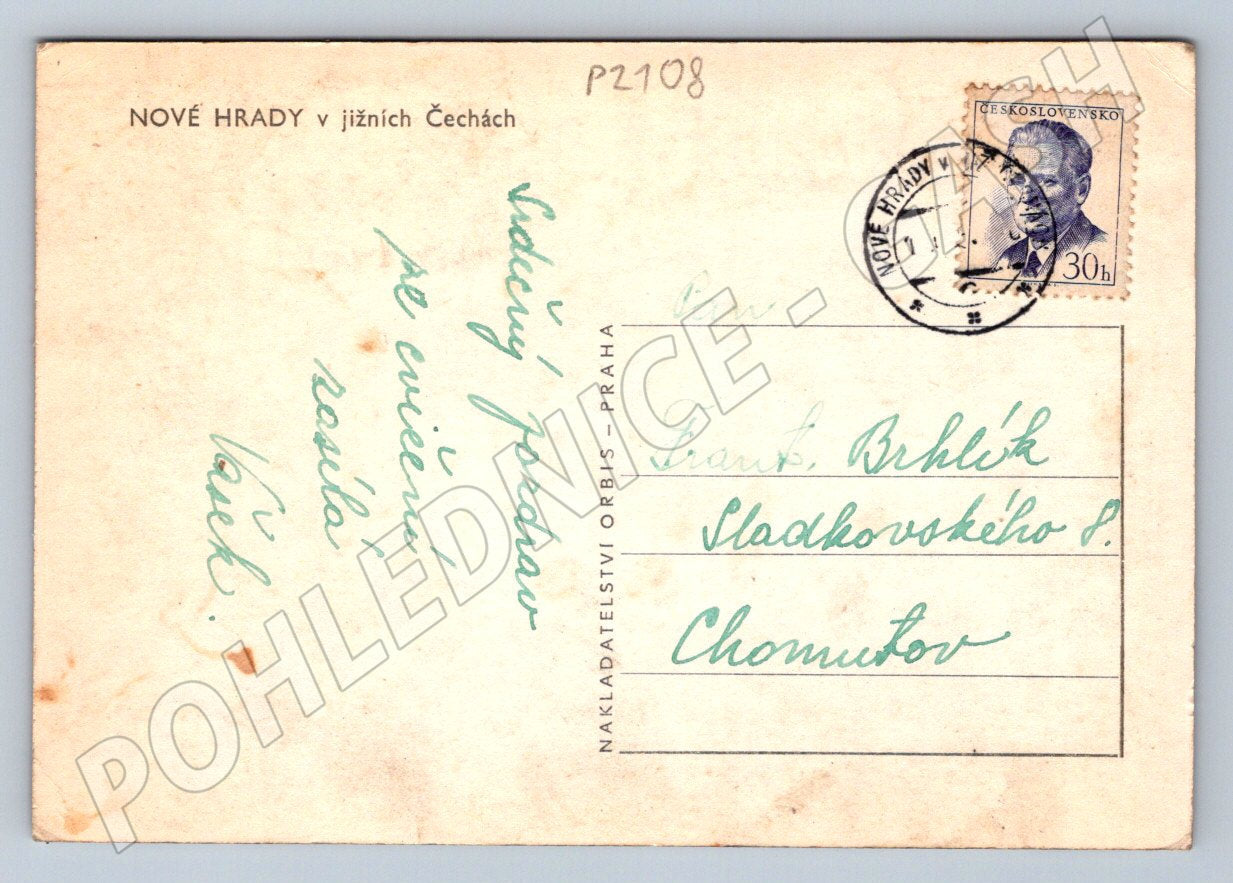 P2108
NOVÉ HRADY v jižních Čechách
ČESKOSLOVENSKO
30h
NOVÉ HRADY v
Srdečný pozdrav
ze cvičení
zasílá
Vašek.
NAKLADATELSTVÍ ORBIS – PRAHA
Pan
Frant. Brhlík
Sladkovského 8.
Chomutov
POHLEDNICE - CZECH